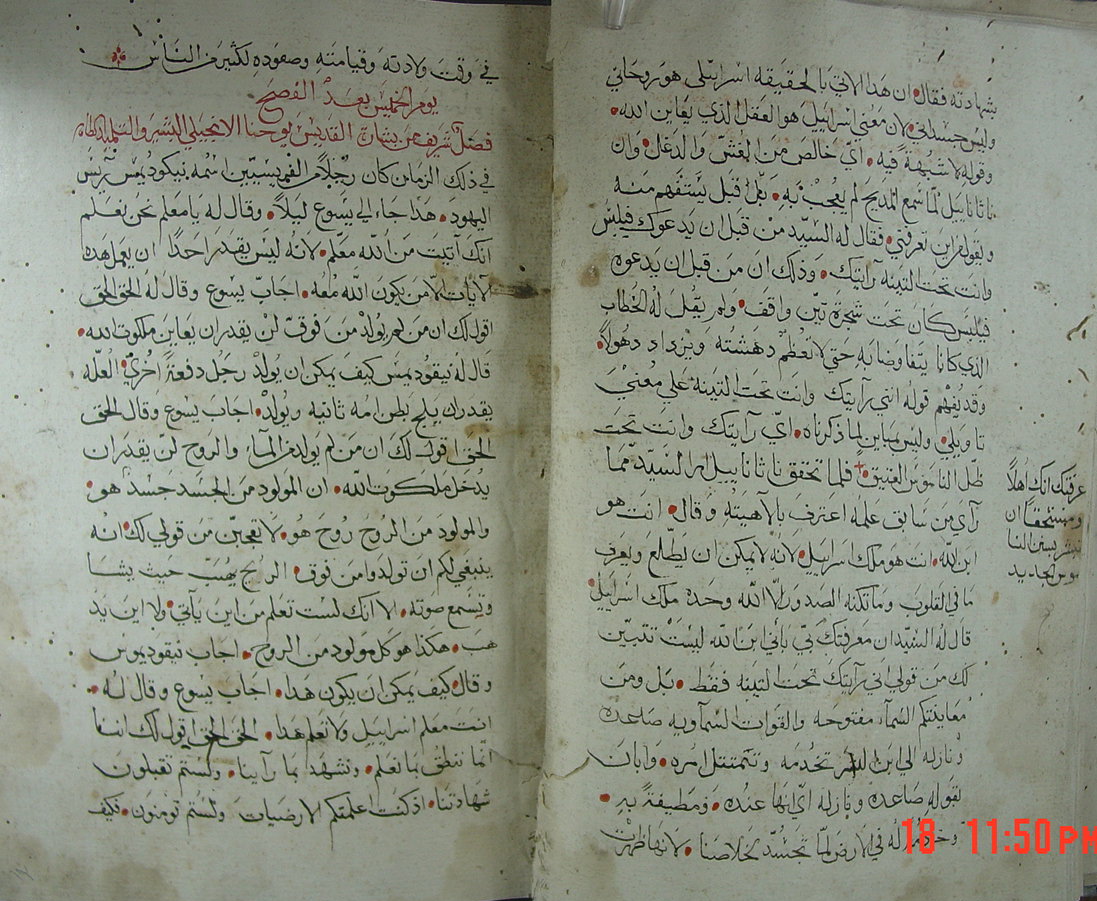 شهادته فقال• ان هذا الاتي بالحقيقه اسراىيلى هو روحاني
وليس جسداني• لان معني اسراييل هو العقل الذي يعاين الله•
وقوله لا شبهة فيه• اي خالص من الغش والدغل• وان
ناثاناييل لما سمع المديح لم يعجب به• بل قبل يستفهم منه
ويقول من اين تعرفني• فقال له السيد من قبل ان يدعوك فيلبس
وانت تحت التينه رايتك• وذلك ان من قبل ان يدعوه
فيلبس كان تحت شجرة تين واقف• ولم يقبل له الخطاب
الذي كانا يتفاوضا به حتي لا تعظم دهشته ويزداد دهولا•
وقد يفهم قوله انني رايتك وانت تحت التينه علي معني
تاويلي• وليس مباين لما ذكرناه• اي رايتك وانت تحت
ظل الناموس العتيق• فلما تحقق ناثاناييل امر السيد مما
عرفتك انك اهلا
ومستحقا ان
تبشر بسنن النا
موس الجديد
راي من سابق علمه اعترف بالاهيته وقال• انت هو
ابن الله• انت هو ملك اسراييل• لانه لا يمكن ان يطلع ويعرف
ما في القلوب وما تكنه الصدور الا الله وحده ملك اسراييل•
قال له السيد ان معرفتك بي باني ابن الله ليست تتبين
لك من قولي اني رايتك تحت التينه فقط• بل ومن
معاينتكم السماء مفتوحه والقوات السماويه صاعده
ونازله الي ابن البشر تخدمه وتتمتثل امره• وابان
لقوله صاعده ونازله اي انها عنده• ومطيفة به•
وخادمه له في الارض لما تجسد لخلاصنا• لانها ظهرت
في وقت ولادته وقيامته وصعوده لكثير من الناس
يوم الخميس بعد الفصح
فصل شريف من بشارة القديس يوحنا الانجيلي البشير والتلميذ الطاهر
في ذلك الزمان كان رجلا من الفريسيين اسمه نيكوديمس رئيس
اليهود• هذا جاء الي يسوع ليلا• وقال له يا معلم نحن نعلم
انك اتيت من الله معلم• لانه ليس يقدر احدا ان يعمل هذه
الايات الا من يكون الله معه• اجاب يسوع وقال له الحق الحق
اقول لك ان من لم يولد من فوق لن يقدر ان يعاين ملكوت الله•
قال له نيقوديمس كيف يمكن ان يولد رجل دفعة اخري• العله
يقدر ان يلج بطن امه ثانيه ويولد• اجاب يسوع وقال الحق
الحق اقول لك ان من لم يولد من الماء والروح لن يقدر ان
يدخل ملكوت الله• ان المولود من الجسد جسد هو•
والمولود من الروح روح هو• لا تعجبن من قولي لك انه
ينبغي لكم ان تولدوا من فوق• الريح يهب حيث يشا
وتسمع صوته• الا انك لست تعلم من اين ياتي• ولا اين يذ
هب• هكذا هو كل مولود من الروح• اجاب نيقوديموس
وقال• كيف يمكن ان يكون هذا• اجاب يسوع وقال له•
انت معلم اسراييل ولا تعلم هذا• الحق الحق اقول لك اننا
انما ننطق بما نعلم• ونشهد بما راينا• ولستم تقبلون
شهادتنا• اذ كنت اعلمتكم الارضيات ولستم تومنون• فكيف
18 11:50 PM